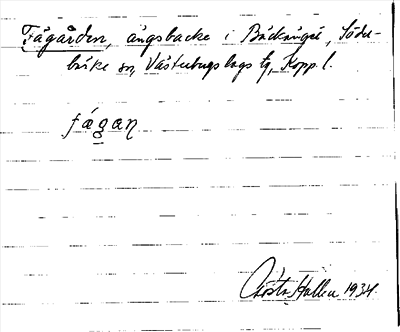 Fågården, ängsbacke i Bäckänget, Söder-
bärke sn, Västerbergslags tg, Kopp. l.
fågan
Gösta Hallen 1934.